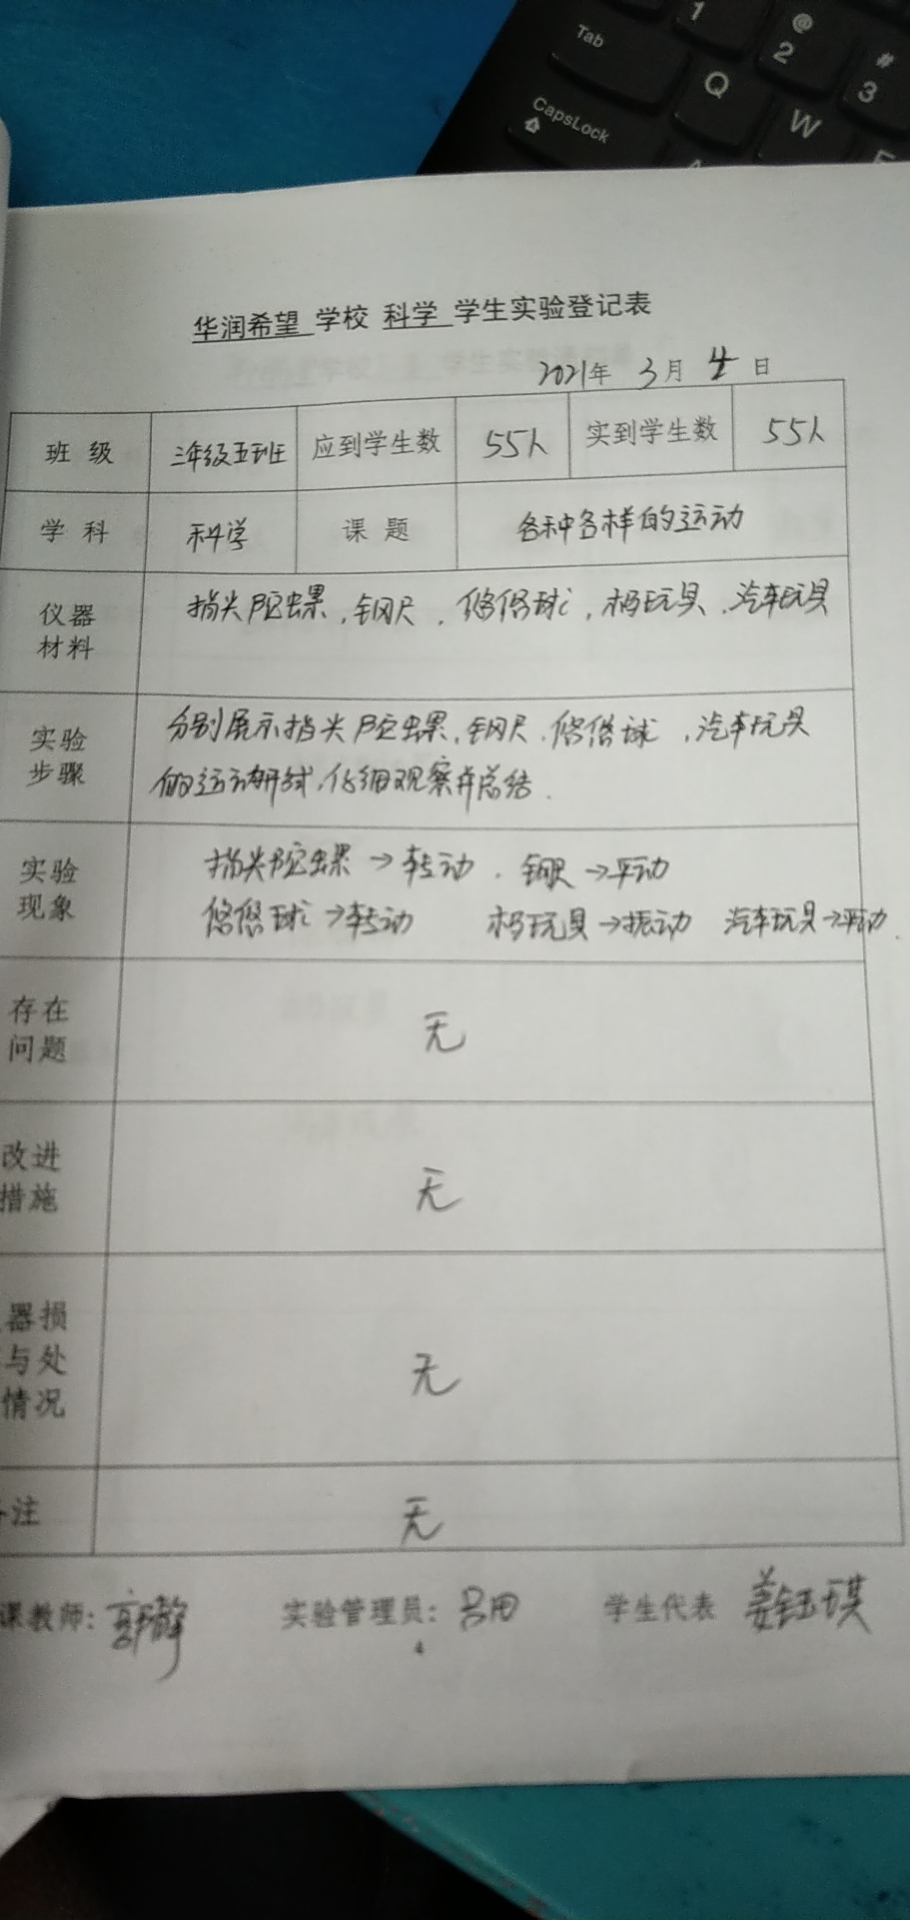 Tab
CapsLock
1
@
2
#
3
Q
W
华润希望 学校 科学 学生实验登记表
2021年 3月 4日
班级 三年级五班 应到学生数 55人 实到学生数 55人
学科 科学 课题 各种各样的运动
仪器
材料
指尖陀螺，钢尺，悠悠球，玩具，汽车玩具
实验
步骤
分别展示指尖陀螺，钢尺，悠悠球，汽车玩具
的运动，仔细观察并总结.
实验
现象
指尖陀螺→转动. 钢尺→平动
悠悠球→转动 玩具→振动 汽车玩具→平动.
存在
问题
无
改进
措施
无
器损
与处
情况
无
注
无
课教师: 实验管理员: 学生代表 姜钰琪
4